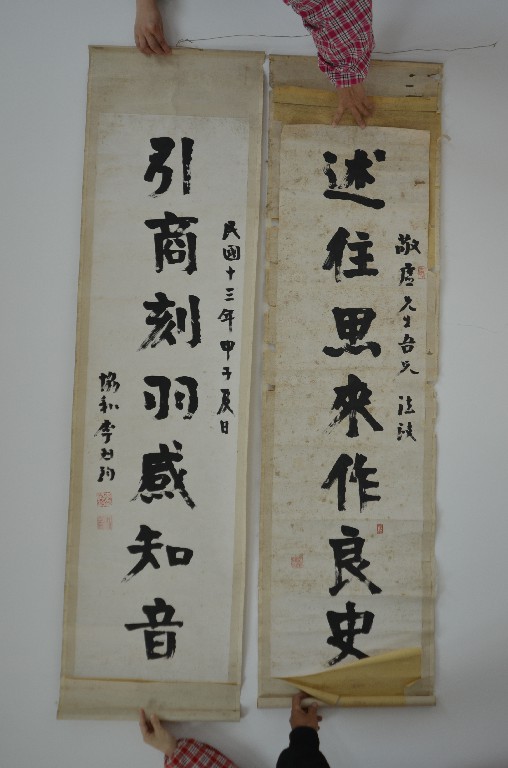 敬虛先生吾兄
述往思來作良史
民國十三年甲子夏日
引商刻羽感知音
協和李烈鈞